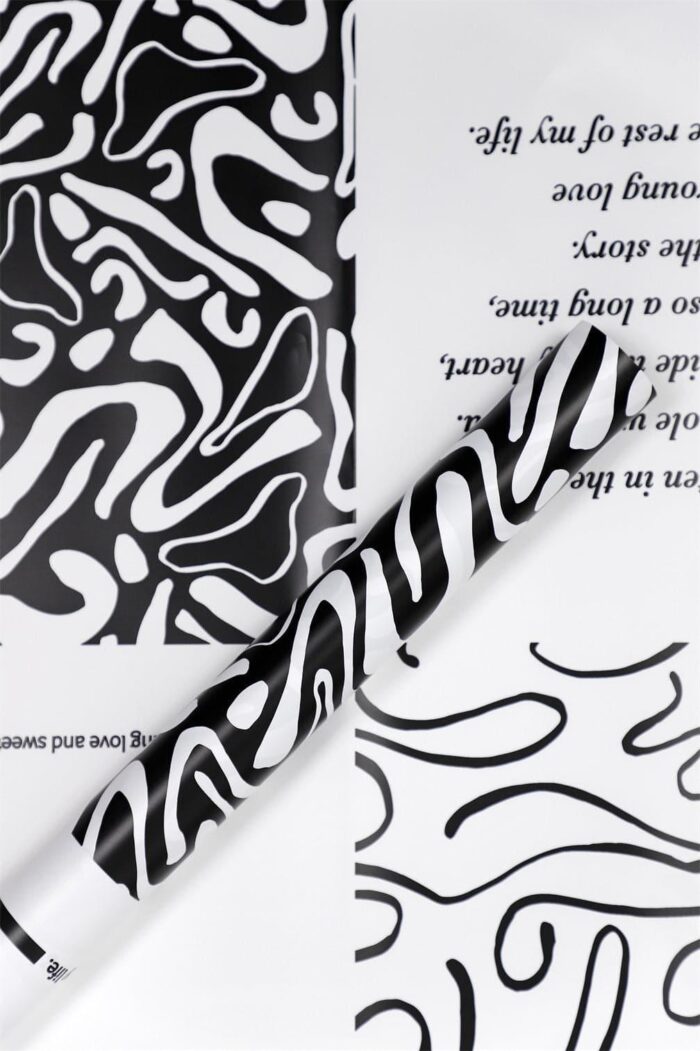 ng love and swee
en in the
ole
ide heart,
so a long time,
the story.
oung love
e rest of my life.